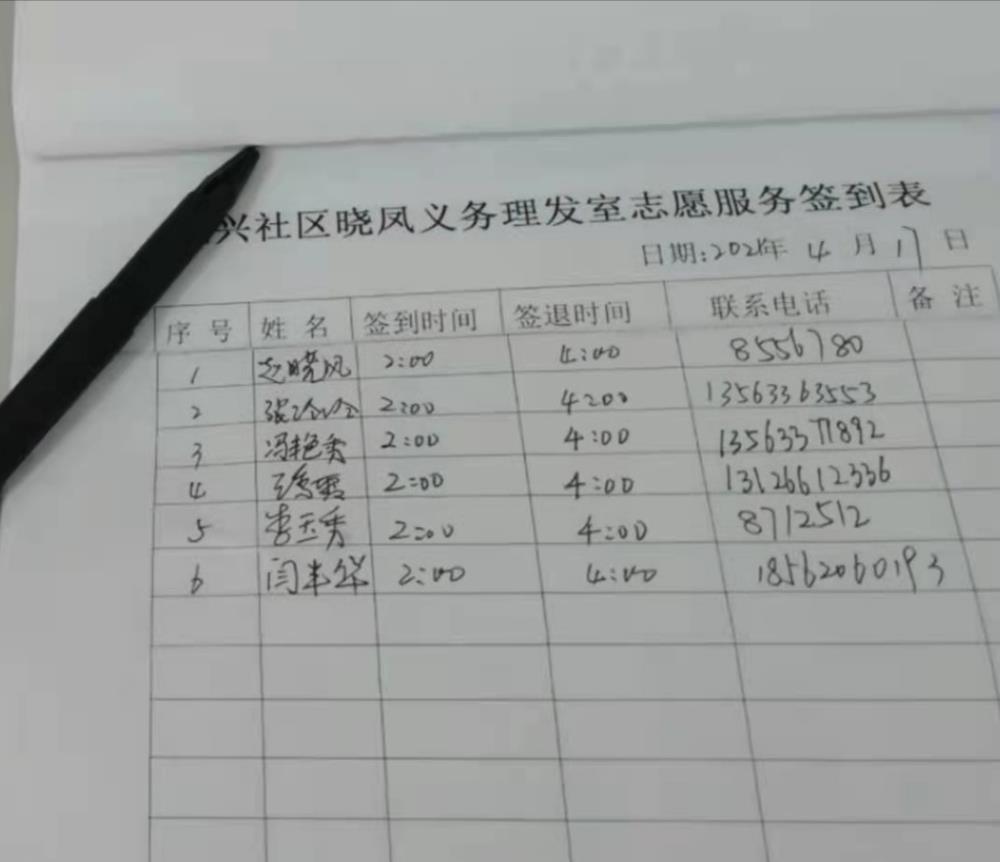 兴社区晓凤义务理发室志愿服务签到表
日期:2021年 4 月 17 日
序 号 姓 名 签到时间 签退时间 联系电话 备 注
1 赵晓凤 2:00 4:00 8556780
2 张玲玲 2:00 4:00 13563363553
3 冯艳秀 2:00 4:00 13563371892
4 2:00 4:00 13126612336
5 李玉秀 2:00 4:00 8712512
6 闫丰华 2:00 4:00 18562060193